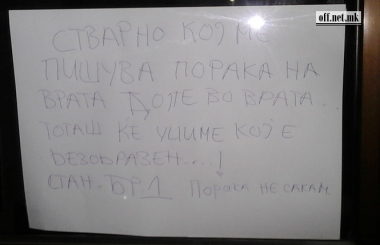 off.net.mk
СТВАРНО КОЈ МЕ
ПИШУВА ПОРАКА НА
ВРАТА ДОЛЕ ВО ВРАТА.
ТОГАШ ЌЕ УЧИМЕ КОЈ Е
БЕЗОБРАЗЕН....!
СТАН. БР.1 ПОРАКА НЕ САКАМ